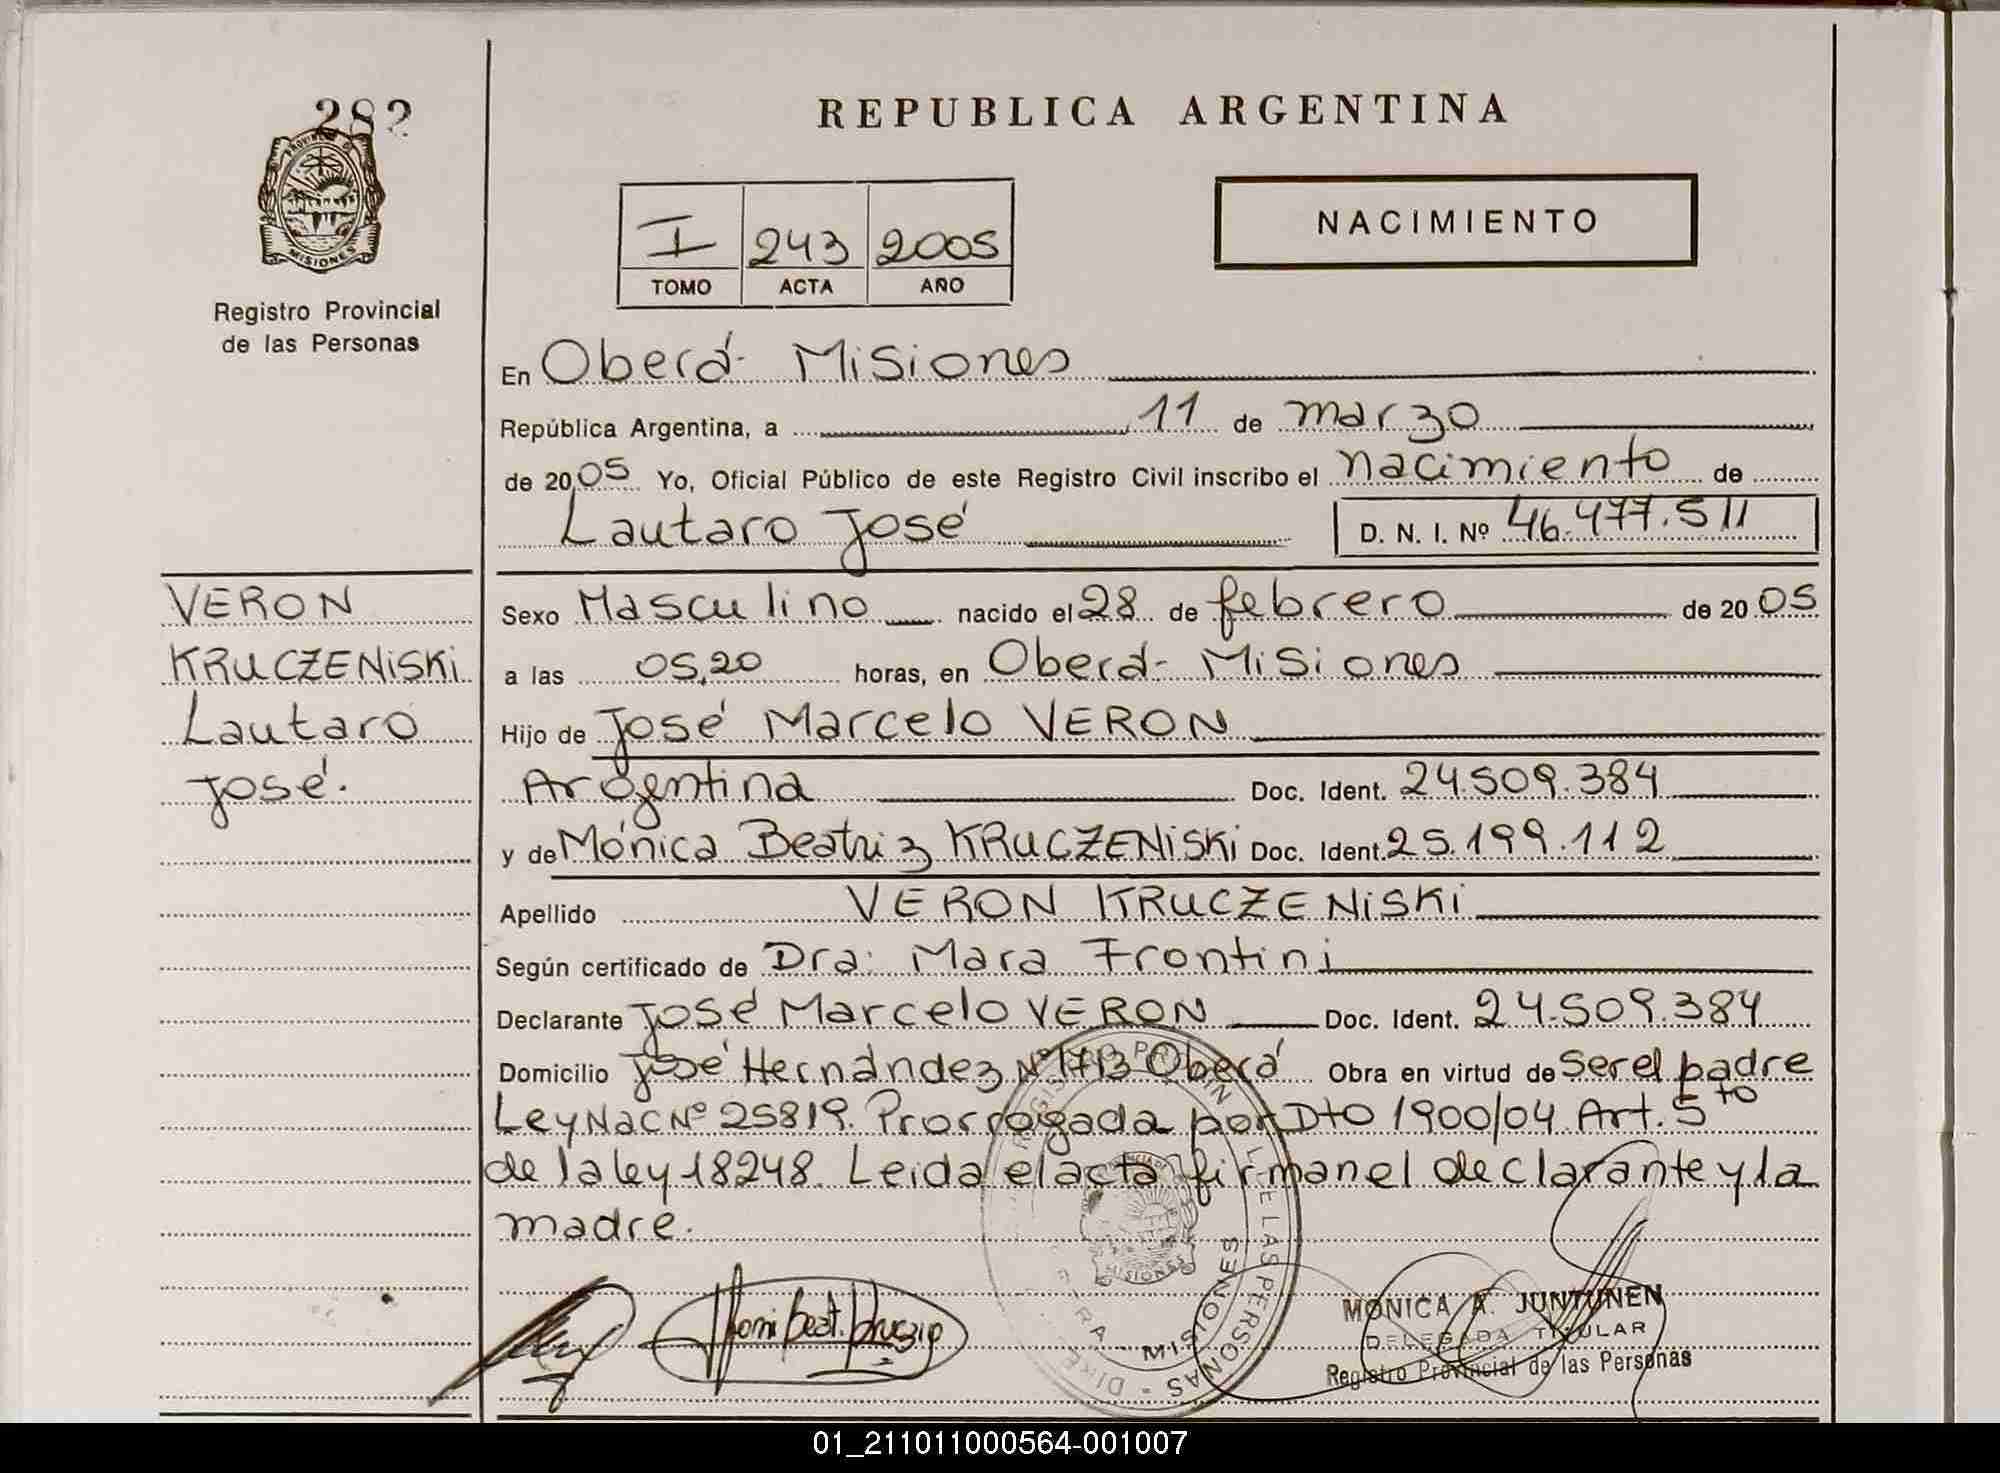 282
PROVINCIA DE
MISIONES
Registro Provincial
de las Personas
VERON
KRUCZENISKI
Lautaro
José.
REPUBLICA ARGENTINA
I 243 2005
TOMO ACTA AÑO
NACIMIENTO
En Oberá- Misiones
República Argentina, a 11 de marzo
de 2005 Yo, Oficial Público de este Registro Civil inscribo el nacimiento de
Lautaro José D. N. I. Nº 46.477.511
Sexo Masculino nacido el 28 de febrero de 2005
a las 05,20 horas, en Oberá- Misiones
Hijo de José Marcelo VERON
Argentina Doc. Ident. 24.509.384
y de Mónica Beatriz KRUCZENISKI Doc. Ident. 25.199.112
Apellido VERON KRUCZENISKI
Según certificado de Dra: Mara Frontini
Declarante José Marcelo VERON Doc. Ident. 24.509.384
Domicilio José Hernández Nº 1713 Oberá Obra en virtud de ser el padre
Ley Nac Nº 25819. Prorrogada por Dto 1900/04 Art. 5to
de la ley 18248. Leida el acta firman el declarante y la
madre.
MISIONES
MONICA A. JUNTUNEN
DELEGADA TITULAR
Registro Provincial de las Personas
01_211011000564-001007